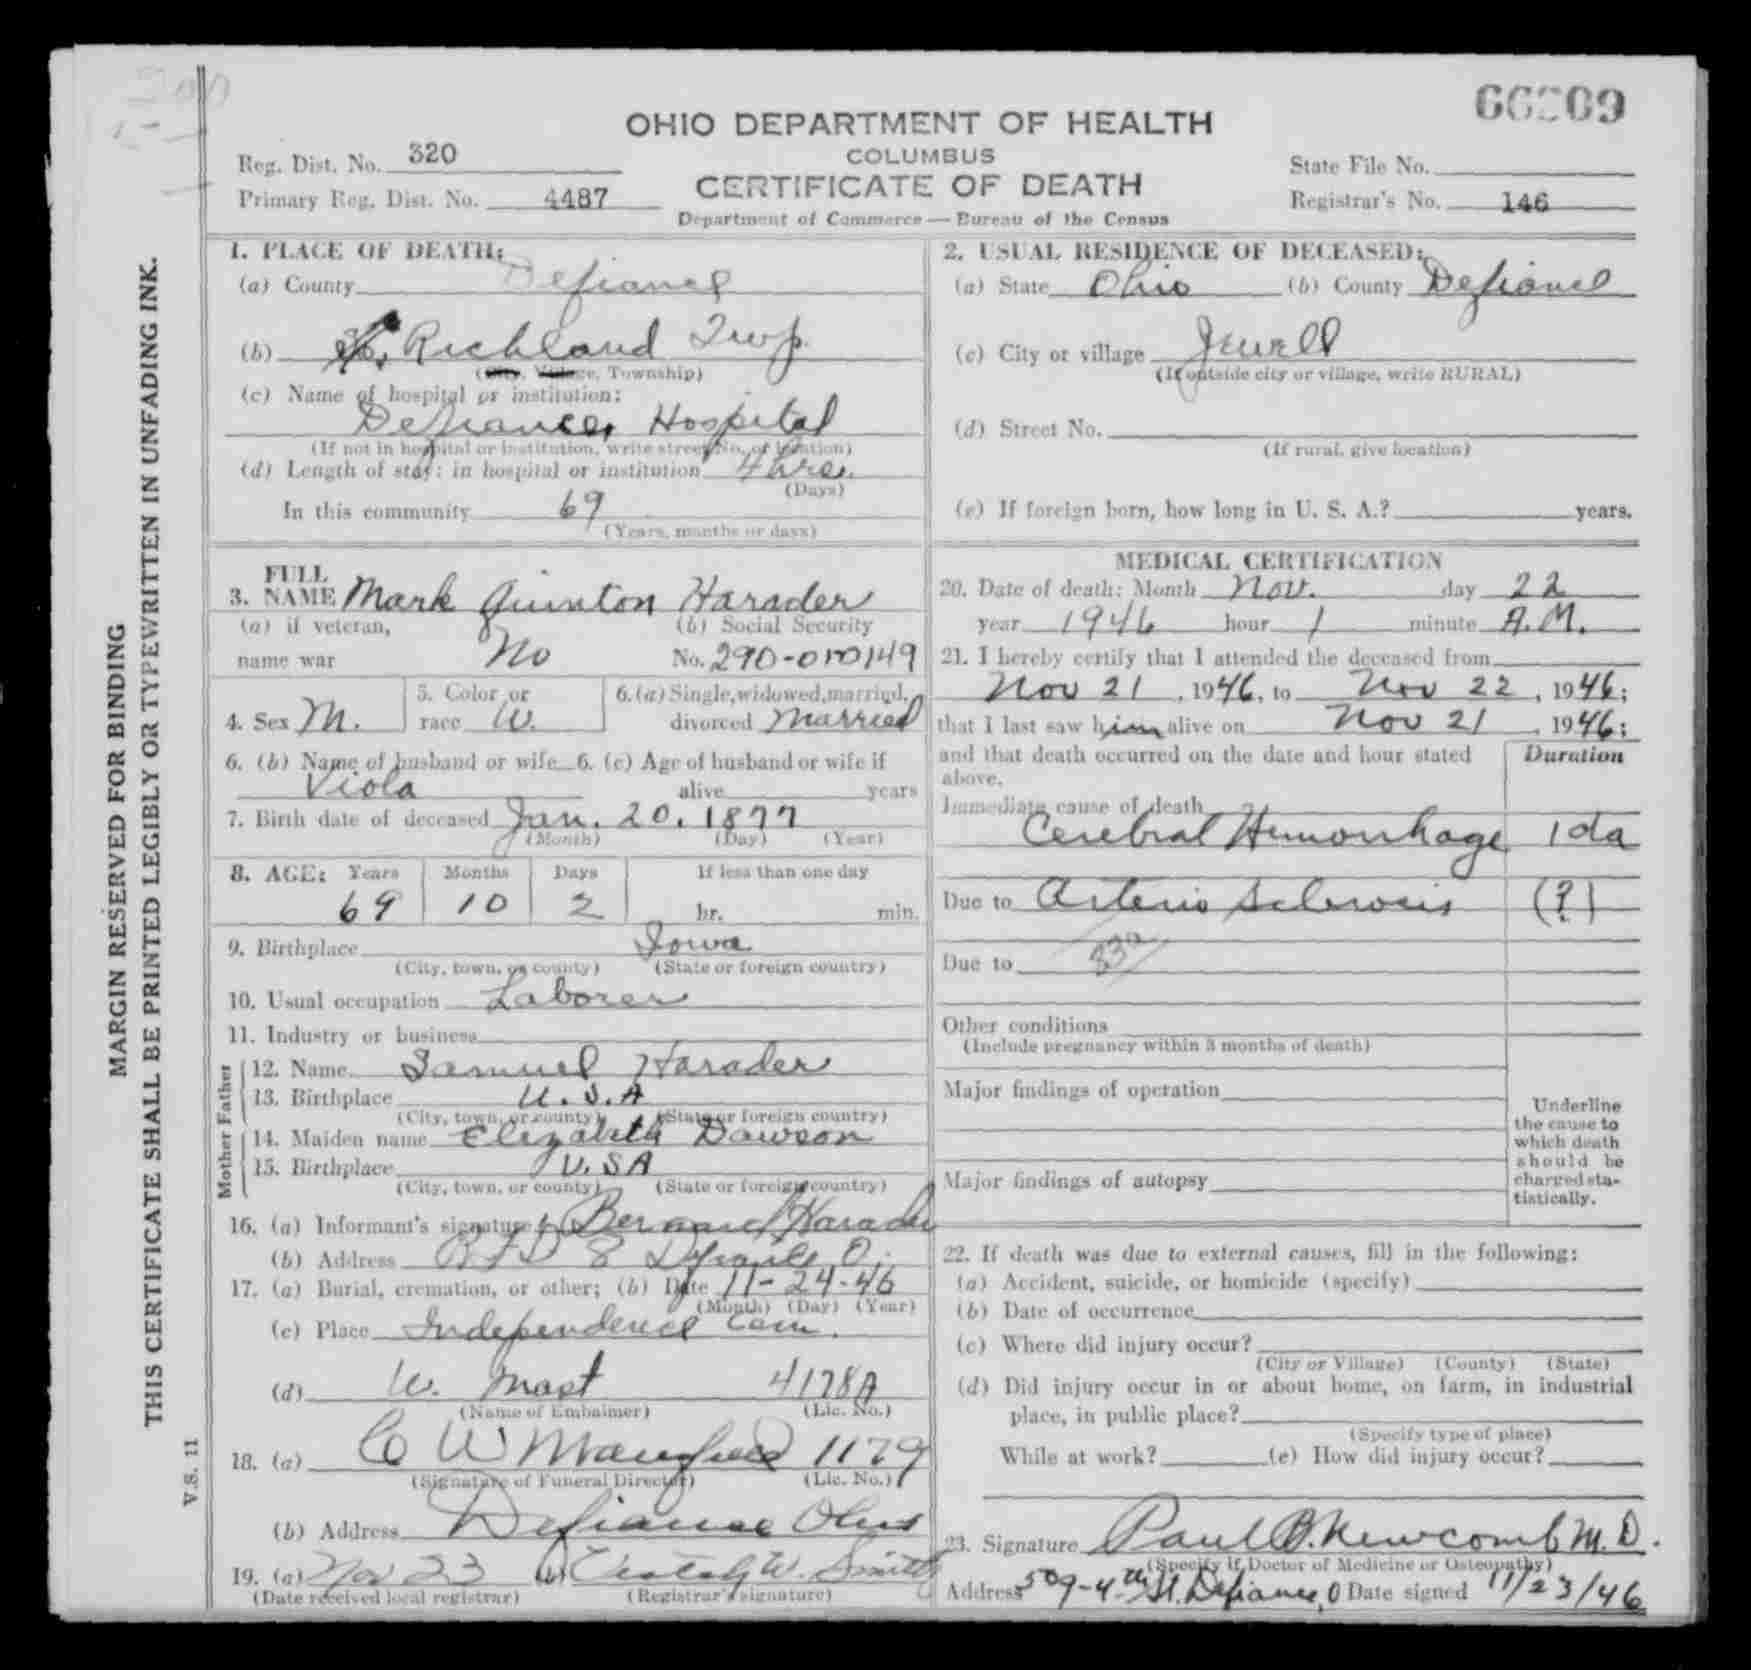 OHIO DEPARTMENT OF HEALTH
COLUMBUS
CERTIFICATE OF DEATH
Department of Commerce — Bureau of the Census
Reg. Dist. No. 320
Primary Reg. Dist. No. 4487
State File No.
Registrar's No. 146
MARGIN RESERVED FOR BINDING
THIS CERTIFICATE SHALL BE PRINTED LEGIBLY OR TYPEWRITTEN IN UNFADING INK.
V.S. 11
1. PLACE OF DEATH:
(a) County Defiance
(b) Richland Twp.
(City, Village, Township)
(c) Name of hospital or institution:
Defiance, Hospital
(If not in hospital or institution, write street No. or location)
(d) Length of stay: in hospital or institution 4 hrs.
(Days)
In this community 69
(Years, months or days)
2. USUAL RESIDENCE OF DECEASED:
(a) State Ohio (b) County Defiance
(c) City or village Jewell
(If outside city or village, write RURAL)
(d) Street No.
(If rural, give location)
(e) If foreign born, how long in U. S. A.? years.
3. FULL NAME Mark Quinton Harader
(a) if veteran, name war No
(b) Social Security No. 290-010149
4. Sex M.
5. Color or race W.
6. (a) Single, widowed, married, divorced Married
6. (b) Name of husband or wife Viola
6. (c) Age of husband or wife if alive years
7. Birth date of deceased Jan. 20. 1877
(Month) (Day) (Year)
8. AGE: Years Months Days If less than one day
69 10 2 hr. min.
9. Birthplace Iowa
(City, town, or county) (State or foreign country)
10. Usual occupation Laborer
11. Industry or business
Father
12. Name Samuel Harader
13. Birthplace U.S.A
(City, town, or county) (State or foreign country)
Mother
14. Maiden name Elizabeth Dawson
15. Birthplace U.S A
(City, town, or county) (State or foreign country)
16. (a) Informant's signature Bernard Harader
(b) Address RFD 8 Defiance, O.
17. (a) Burial, cremation, or other; (b) Date 11-24-46
(Month) (Day) (Year)
(c) Place Independence Cem.
(d) W. Mast 4178A
(Name of Embalmer) (Lic. No.)
18. (a) C W Mansfield 1179
(Signature of Funeral Director) (Lic. No.)
(b) Address Defiance Ohio
19. (a) Nov 23 (b) W. Smith
(Date received local registrar) (Registrar's signature)
MEDICAL CERTIFICATION
20. Date of death: Month Nov. day 22
year 1946 hour 1 minute A.M.
21. I hereby certify that I attended the deceased from
Nov 21, 1946, to Nov 22, 1946;
that I last saw him alive on Nov 21, 1946;
and that death occurred on the date and hour stated above.
Duration
Immediate cause of death
Cerebral Hemorrhage 1 da
Due to Arterio Sclerosis (?)
Due to 83a
Other conditions
(Include pregnancy within 3 months of death)
Major findings of operation
Major findings of autopsy
Underline the cause to which death should be charged statistically.
22. If death was due to external causes, fill in the following:
(a) Accident, suicide, or homicide (specify)
(b) Date of occurrence
(c) Where did injury occur?
(City or Village) (County) (State)
(d) Did injury occur in or about home, on farm, in industrial
place, in public place?
(Specify type of place)
While at work? (e) How did injury occur?
23. Signature Paul B. Newcomb M.D.
(Specify if Doctor of Medicine or Osteopathy)
Address 509-4th St. Defiance, O Date signed 11/23/46